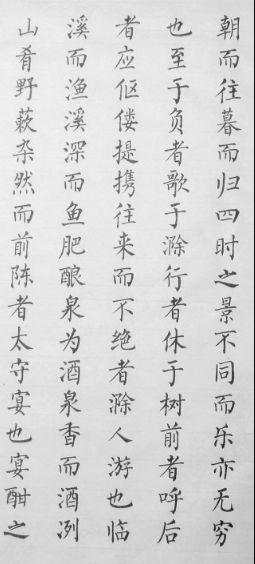 朝而往暮而归四时之景不同而乐亦无穷
也至于负者歌于滁行者休于树前者呼后
者应伛偻提携往来而不绝者滁人游也临
溪而渔溪深而鱼肥酿泉为酒泉香而酒冽
山肴野蔌杂然而前陈者太守宴也宴酣之